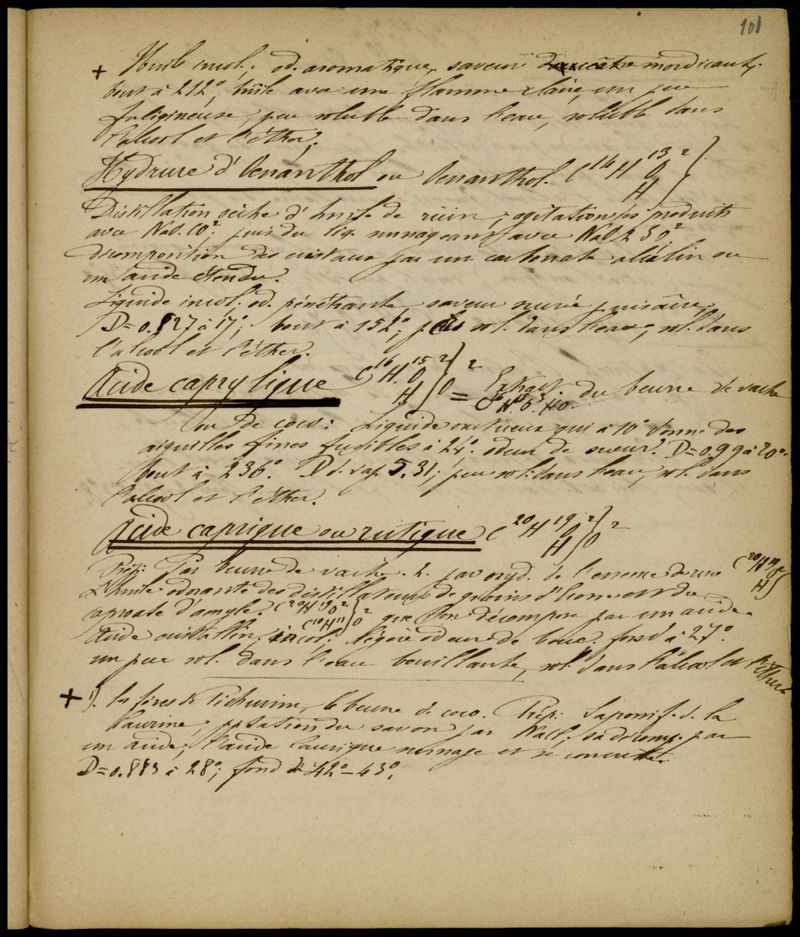 101
+ Huile incol. od. aromatique, saveur mordicante,
bout à 212°, brûle avec une flamme claire, un peu
fuligineuse, peu soluble dans l'eau, soluble dans
l'alcool et l'éther.
Hydrure d'Oenanthol ou Oenanthol. C16 H13 O2 H }
Distillation sèche d'huile de ricin, agitation des produits
avec NaO.CO2 puis du liq. surnageant avec NaO 2SO2
décomposition des cristaux par un carbonate alcalin ou
un acide étendu.
Liquide incol. od. pénétrante saveur sucrée puis âcre,
D=0.827 à 17°; bout à 152°; peu sol. dans l'eau, sol. dans
l'alcool et l'éther.
Acide caprylique C16 H15 O2 H } O2 = Extract. du beurre de vache
ou de coco: Liquide onctueux qui à 10° donne des
aiguilles fines fusibles à 24°. odeur de sueur. D=0.99 à 20°.
bout à 236°. D d. vap. 5.31. peu sol. dans l'eau, sol. dans
l'alcool et l'éther.
Acide caprique ou rutique C20 H19 O2 H } O2
Prép: Par beurre de vache. 2. par oxyd. de l'essence de rue C20 H19 O2 H }
L'huile odorante des distillateurs de grains d'Ecosse est du
caproate d'amyle. C20 H19 O2 C10 H11 } O2 que l'on décompose par un acide.
Acide cristallin, incol. légère odeur de bouc. fond à 27°.
un peu sol. dans l'eau bouillante, sol. dans l'alcool et l'éther
+ 1). les fèves de Pichurim, le beurre de coco. Prép: Saponif. d. la
laurine, pptation du savon par NaCl. sa décomp. par
un acide; l'acide laurique surnage et se concrète.
D=0.883 à 28°; fond à 42°–43°.